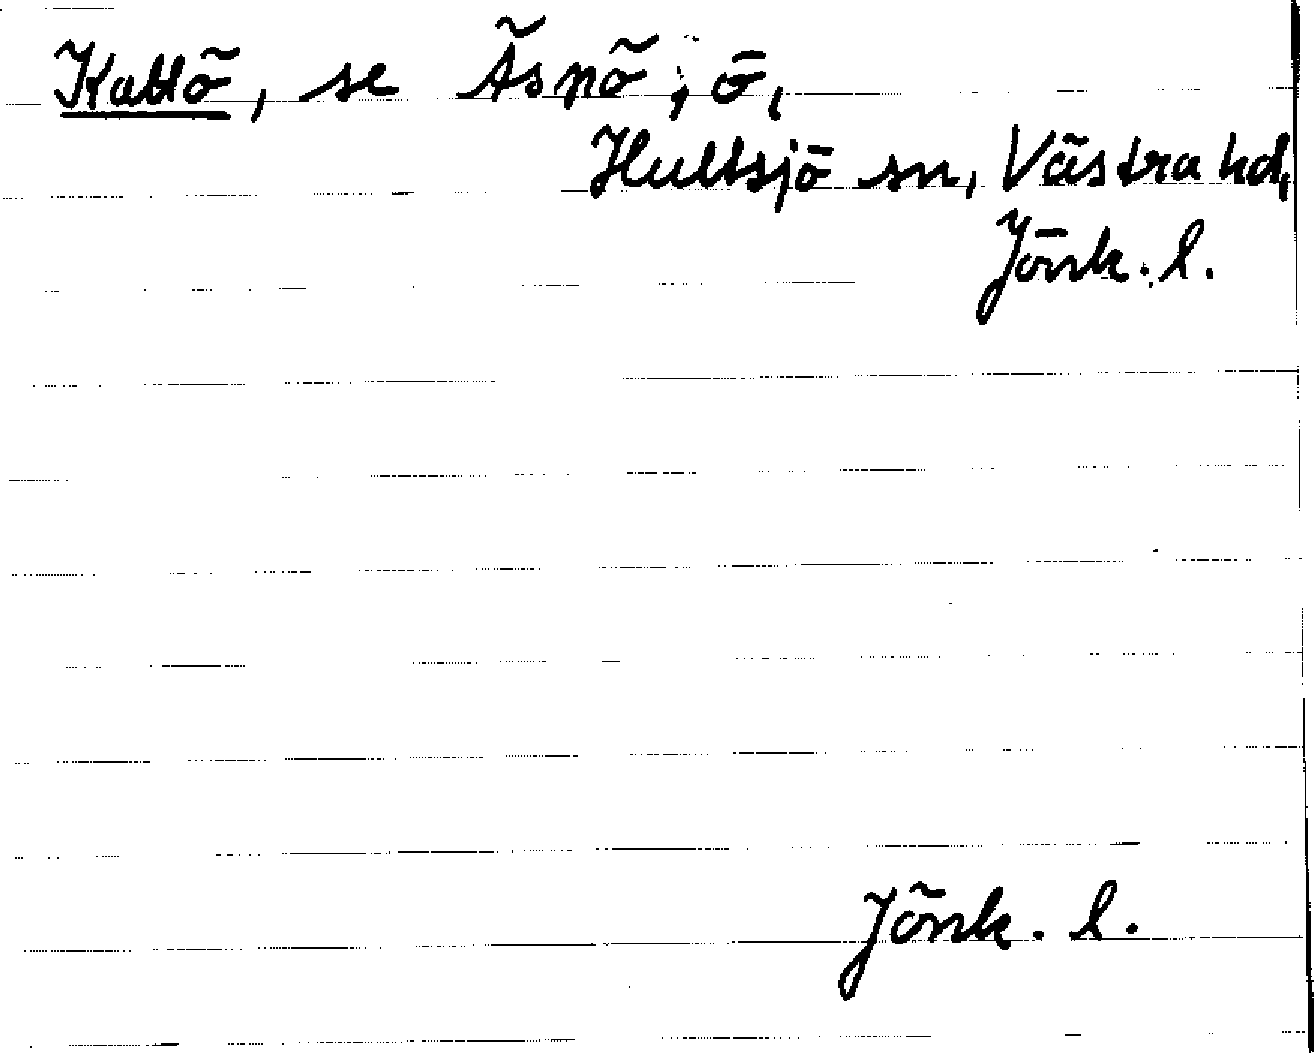 Kattö, se Äsnö, ö,
Hultsjö sn, Västra hd,
Jönk. l.
Jönk. l.